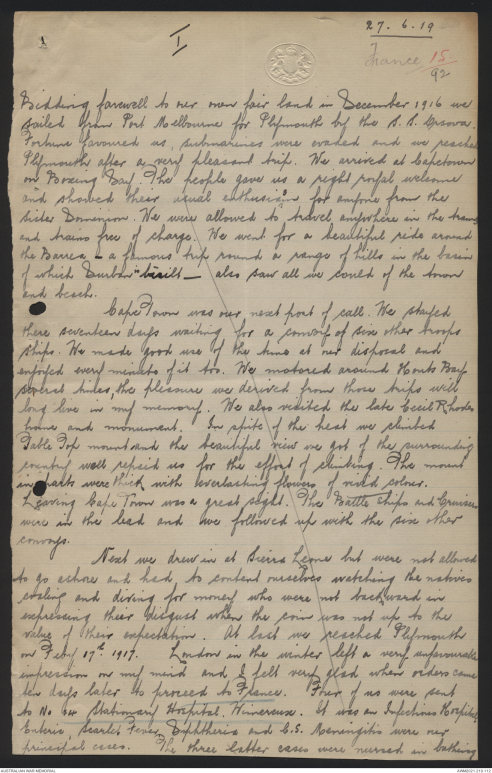 27. 6. 19
I
France 15/92
Bidding farewell to our own fair land in December 1916 we
sailed from Port Melbourne for Plymouth by the S.S. Orsova.
Fortune favoured us, submarines were evaded and we reached
Plymouth after a very pleasant trip. We arrived at Capetown
on Boxing Day. The people gave us a right royal welcome
and showed their usual enthusiasm for anyone from the
Sister Dominion. We were allowed to travel anywhere in the trams
and trains free of charge. We went for a beautiful ride around
the Barrea - a famous trip round a range of hills in the basin
of which Durban "built - also saw all we could of the town
and beach.
Cape Town was our next port of call. We stayed
there seventeen days waiting for a convoy of six other troops
ships. We made good use of the time at our disposal and
enjoyed every minute of it too. We motored around Houts Bay
several times, the pleasure we derived from those trips will
long live in my memory. We also visited the late Cecil Rhodes
home and monument. In spite of the heat we climbed
Table Top mount and the beautiful view we got of the surrounding
country well repaid us for the effort of climbing. The mount
in parts were thick with everlasting flowers of vivid colour.
Leaving Cape Town was a great sight. The Battle ships and Cruisers
were in the lead and we followed up with the six other
convoys.
Next we drew in at Sierra Leone but were not allowed
to go ashore and had to content ourselves watching the natives
coaling and diving for money who were not backward in
expressing their disgust when the coin was not up to the
value of their expectation. At last we reached Plymouth
on Feby 17th 1917. London in the winter left a very unfavourable
impression on my mind and I felt very glad when orders came
ten days later to proceed to France. Four of us were sent
to No 14 Stationary Hospital, Wimereux. It was an Infectious Hospital,
Enteric, Scarlet Fever, Diphtheria and C.S. Meningitis were our
principal cases. The three latter cases were nursed in bathing
AUSTRALIAN WAR MEMORIAL